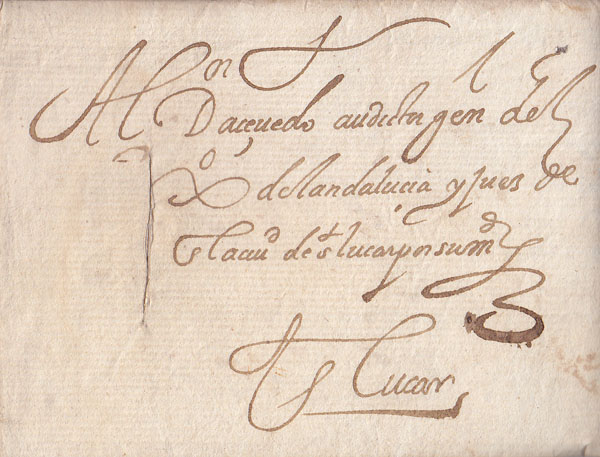 Al
Daçevedo audictor gen del
de landalucia y jues de
la ciud de st lucar por su md
S Lucar